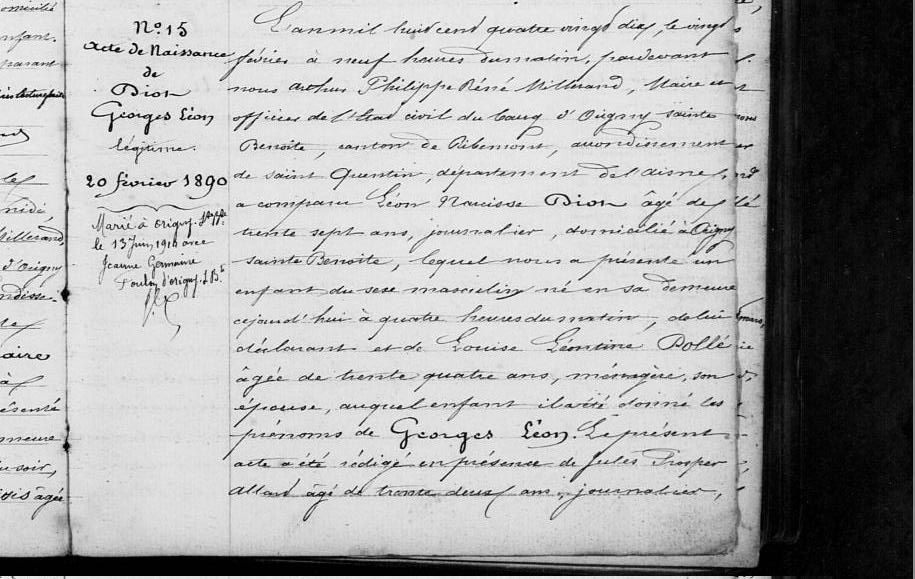 N° 15
Acte de Naissance
de
Dion
Georges Léon
légitime.
20 février 1890
Marié à Origny
le 13 Juin 1914 avec
Jeanne Germaine
d'origny. S B.te
L'an mil huit cent quatre vingt dix, le vingt
février à neuf heures du matin, pardevant
nous Arthur Philippe Réné Millerand, Maire et
officier de l'État civil du bourg d'Origny sainte
Benoite, canton de Ribemont, arrondissement
de saint Quentin, département de l'aisne,
a comparu Léon Narcisse Dion âgé de
trente sept ans, journalier, domicilié à Origny
sainte Benoite, lequel nous a présenté un
enfant du sexe masculin né en sa demeure
cejourd'hui à quatre heures du matin, de lui
déclarant et de Louise Léontine Pollé
âgée de trente quatre ans, ménagère, son
épouse, auquel enfant il a été donné les
prénoms de Georges Léon. Le présent
acte a été rédigé en présence de Jules Prosper
Allard âgé de trente deux ans, journalier,